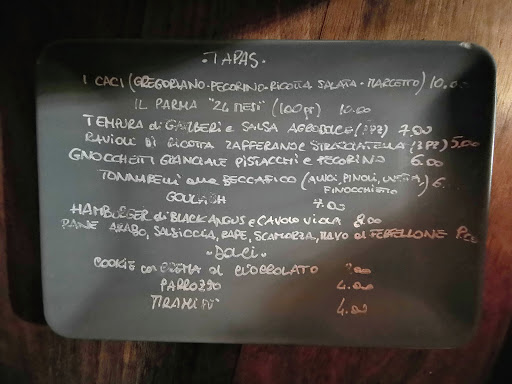 • TAPAS •
I CACI (GREGORIANO • PECORINO • RICOTTA SALATA • MARCETTO) 10.00
IL PARMA "24 MESI" (100gr) 10.00
TEMPURA di GAMBERI e SALSA AGRODOLCE (3PZ) 7.00
RAVIOLI DI RICOTTA ZAFFERANO e STRACCIATELLA (3PZ) 5.00
GNOCCHETTI GUANCIALE PISTACCHI e PECORINO 6.00
TONNARELLI alla BECCAFICO (ALICI, PINOLI, UVETTA,) 6.
FINOCCHIETTO
GOULASH 7.00
HAMBURGER di BLACK ANGUS e CAVOLO VIOLA 8.00
PANE ARABO, SALSICCIA, RAPE, SCAMORZA, di
• DOLCI •
COOKIE con CREMA al CIOCCOLATO
PARROZZO 4.00
TIRAMISÙ 4.00